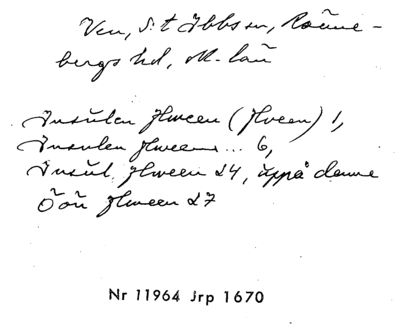 Ven, S:t Ibbs sn, Rönne-
bergs hd, M-län
Insulen Hween (Hveen) 1,
Insulen Hweens... 6,
Insul. Hween 24, uppå denne
Öön Hween 27
Nr 11964 Jrp 1670